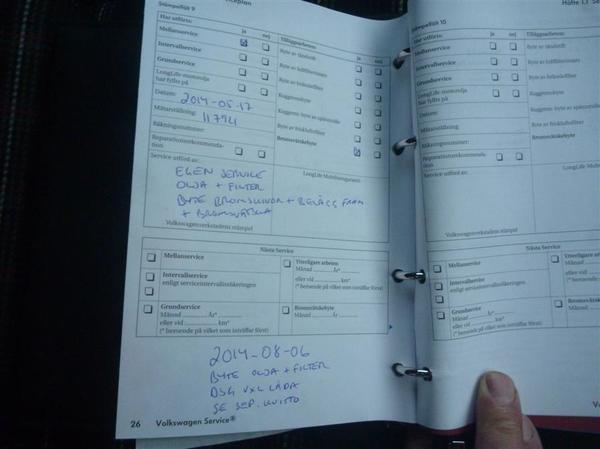 Serviceplan
Häfte 1.1
Stämpelfält 9
Har utförts: ja nej
Mellanservice
Intervallservice
Grundservice
LongLife motorolja
har fyllts på
Datum: 2014-05-17
Mätarställning: 11794
Räkningsnummer:
Reparationsrekommenda-
tion
Service utförd av:
EGEN SERVICE
OLJA + FILTER
BYTE BROMSSKIVOR + BELÄGG FRAM
+ BROMSVÄTSKA
Volkswagenverkstadens stämpel
Tilläggsarbeten: ja nej
Byte av tändstift
Byte av luftfilterinsats
Byte av bränslefilter
Kuggremsbyte
Byte av friskluftsfilter
Bromsvätskebyte
LongLife Mobilitetsgaranti
Nästa Service
Mellanservice
Intervallservice
enligt serviceintervallindikeringen
Grundservice
Månad år*
eller vid km*
(* beroende på vilket som inträffar först)
Ytterligare arbeten
Månad år*
eller vid km*
(* beroende på vilket som inträffar först)
Bromsvätskebyte
Månad år
2014-08-06
BYTE OLJA + FILTER
DSG VXL LÅDA
SE SEP. KVITTO
26 Volkswagen Service®
Stämpelfält 10
Har utförts: ja nej
Mellanservice
Intervallservice
Grundservice
LongLife motorolja
har fyllts på
Datum:
Mätarställning:
Räkningsnummer:
Reparationsrekommenda-
tion
Service utförd av:
Volkswagenverkstadens stämpel
Tilläggsarbeten:
Byte av tändstift
Byte av luftfilterinsats
Byte av bränslefilter
Kuggremsbyte
Byte av friskluftsfilter
Bromsvätskebyte
LongLife Mobilitetsgaranti
Nästa Service
Mellanservice
Intervallservice
enligt serviceintervallindikeringen
Grundservice
Månad år*
eller vid km*
(* beroende på vilket som inträffar först)
Ytterligare arbeten
Månad
eller vid
(* beroende på
Bromsvätskebyte
Månad